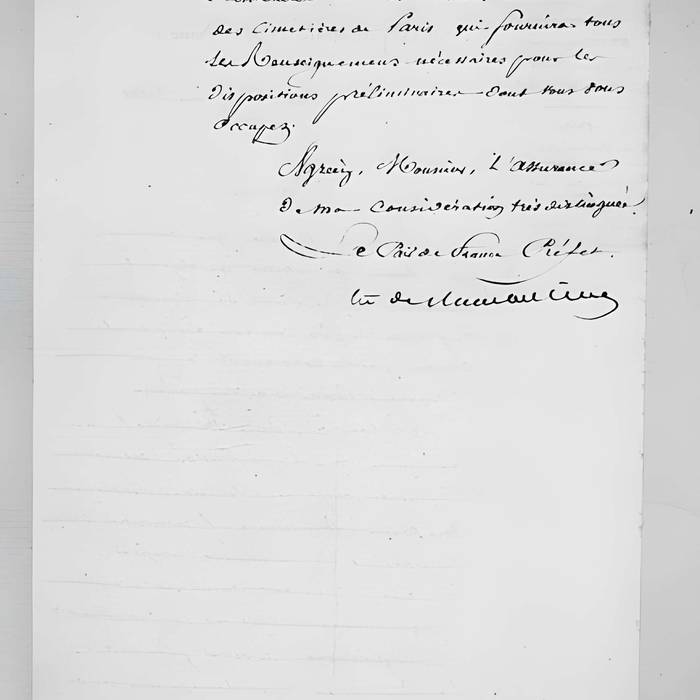 des Cimetières de Paris qui fournira tous
les Renseignemens nécessaires pour les
dispositions préliminaires dont vous vous
occupez.
Agréez, Monsieur, l'assurance
de ma considération très distinguée.
Le Pair de France Préfet.